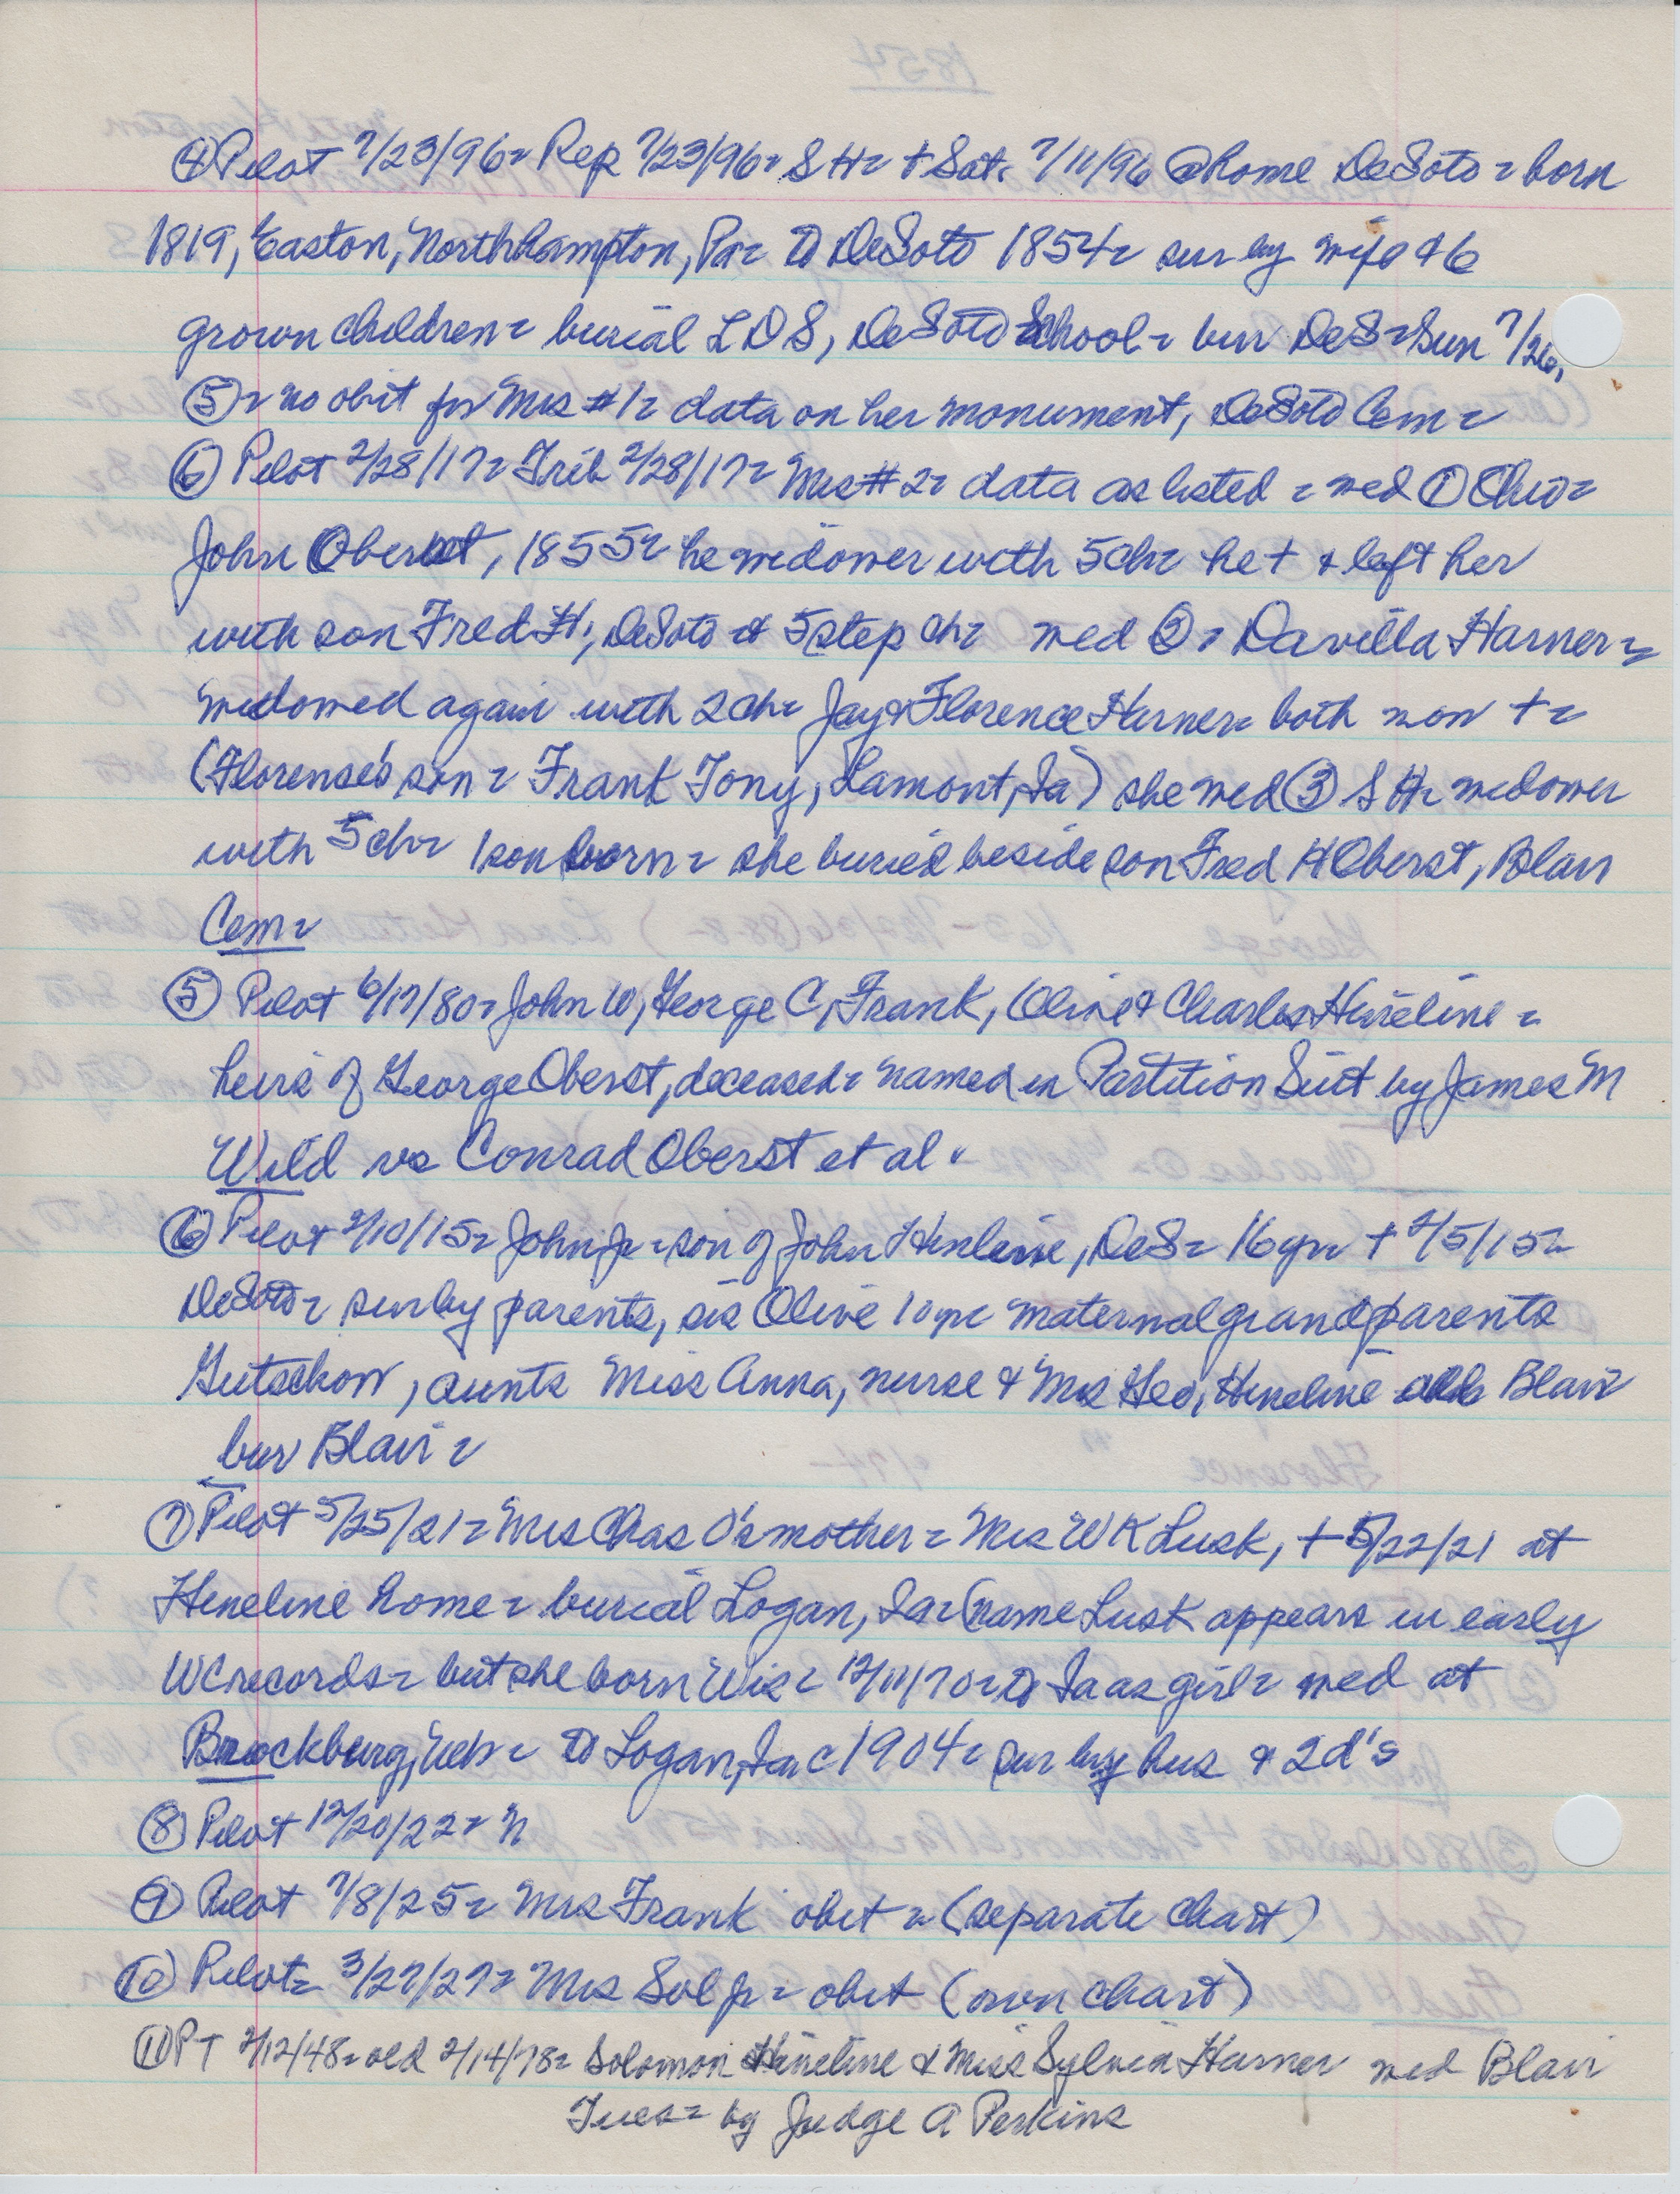 ④ Pilot 7/23/96 - Rep 7/23/96 - S H - + Sat. 7/11/96 @ home DeSoto - born
1819, Easton, Northhampton, Pa - to DeSoto 1854 - sur by wife & 6
grown children - burial L D S, DeSoto School - bur DeS - Sun 7/26,
⑤ - no obit for Mrs #1 - data on her monument, DeSoto Cem -
⑥ Pilot 2/28/17 - Trib 2/28/17 - Mrs #2 - data as listed - med ① Ohio -
John Oberst, 1855 - he widower with 5 ch - he + & left her
with son Fred H, DeSoto & 5 step ch - med ② - Davilla Harner -
widowed again with 2 ch - Jay & Florence Harner - both now + -
(Florense's son - Frank Tony, Lamont, Ia) she med ③ S H - widower
with 5 ch - 1 son born - she buried beside son Fred H Oberst, Blair
Cem -
⑤ Pilot 6/17/80 - John W, George C, Frank, Olive & Charles Hineline -
heirs of George Oberst, deceased - named in Partition Suit by James M
Wild vs Conrad Oberst et al -
⑥ Pilot 2/10/15 - John Jr - son of John Hineline, DeS - 16 yr - + 2/5/15 -
DeSoto - sur by parents, sis Olive 10 yr - maternal grandparents
Gutschow, aunts Miss Anna, nurse & Mrs Geo, Hineline all Blair
bur Blair -
⑦ Pilot 5/25/21 - Mrs Chas O's mother - Mrs W K Lusk, + 5/22/21 at
Hineline home - burial Logan, Ia - (name Lusk appears in early
WC records - but she born Wis - 12/11/70 - to Ia as girl - med at
Brockburg, Neb - to Logan, Ia c 1904 - sur by hus & 2 d's
⑧ Pilot 12/20/22 - N
⑨ Pilot 7/8/25 - Mrs Frank obit - (separate chart)
⑩ Pilot - 3/27/27 - Mrs Sol Jr - obit (own chart)
⑪ PT 2/12/48 - old 2/14/78 - Solomon Hineline & Miss Sylvia Harner med Blair
Tues - by Judge A Perkins